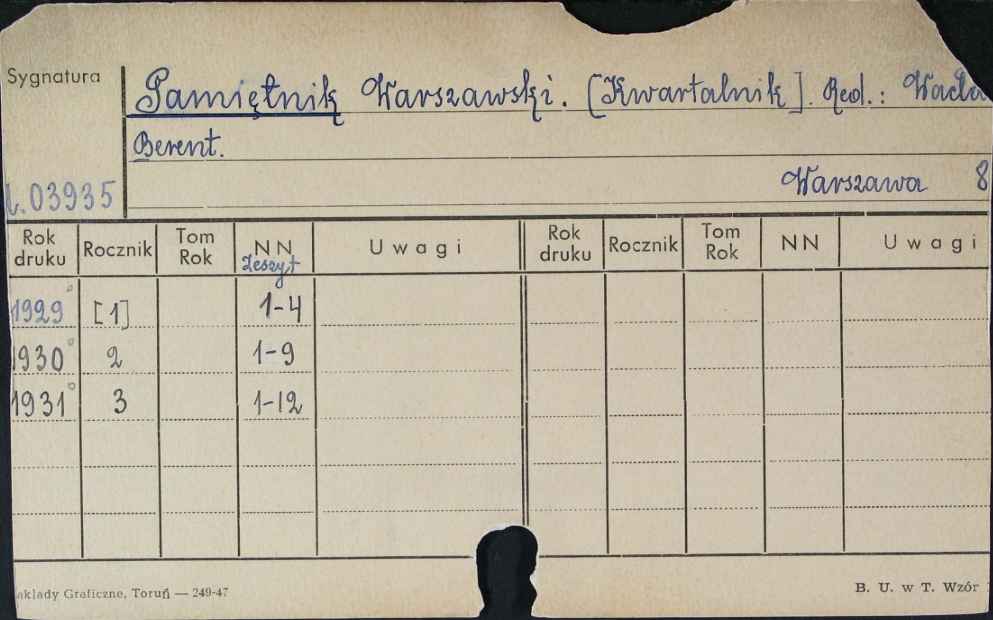 Sygnatura
Pamiętnik Warszawski. [Kwartalnik]. Red.: Wacła
Berent.
Warszawa 8
l.03935
Rok druku Rocznik Tom Rok NN Zeszyt Uwagi Rok druku Rocznik Tom Rok NN Uwagi
1929° [1] 1-4
1930° 2 1-9
1931° 3 1-12
akłady Graficzne, Toruń — 249-47
B. U. w T. Wzór